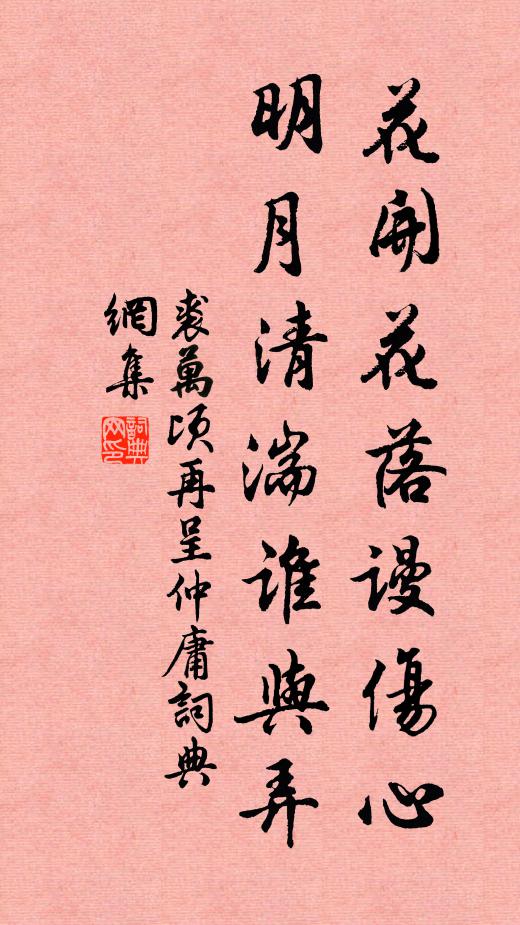 花開花落謾傷心
明月清湍誰與弄
裘萬頃再呈仲庸詞典
網集
詞典
網印